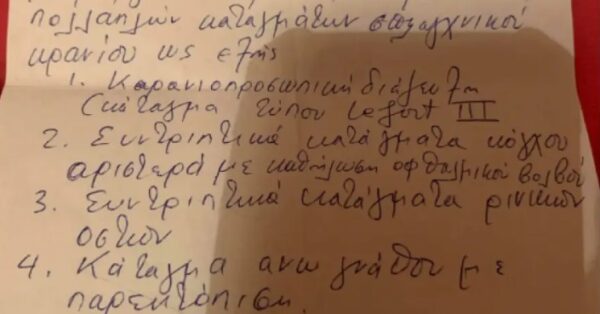 πολλαπλών καταγμάτων σπλαγχνικού
κρανίου ως εξής
1. Κρανιοπροσωπική διάζευξη
(κάταγμα τύπου Lefort III
2. Συντριπτικά κατάγματα κόγχου
αριστερά με καθήλωση οφθαλμικού βολβού
3. Συντριπτικά κατάγματα ρινικών
οστών
4. Κάταγμα ανω γνάθου με
παρεκτόπιση.